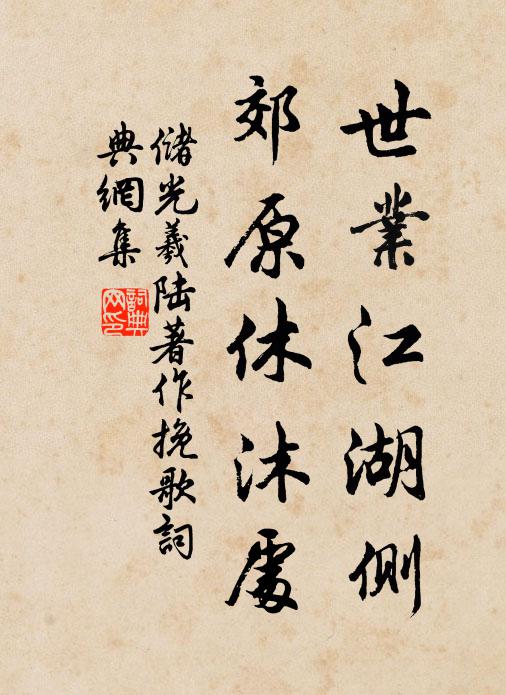 世業江湖側
郊原休沐處
儲光羲陸著作挽歌詞
典網集
詞典網印